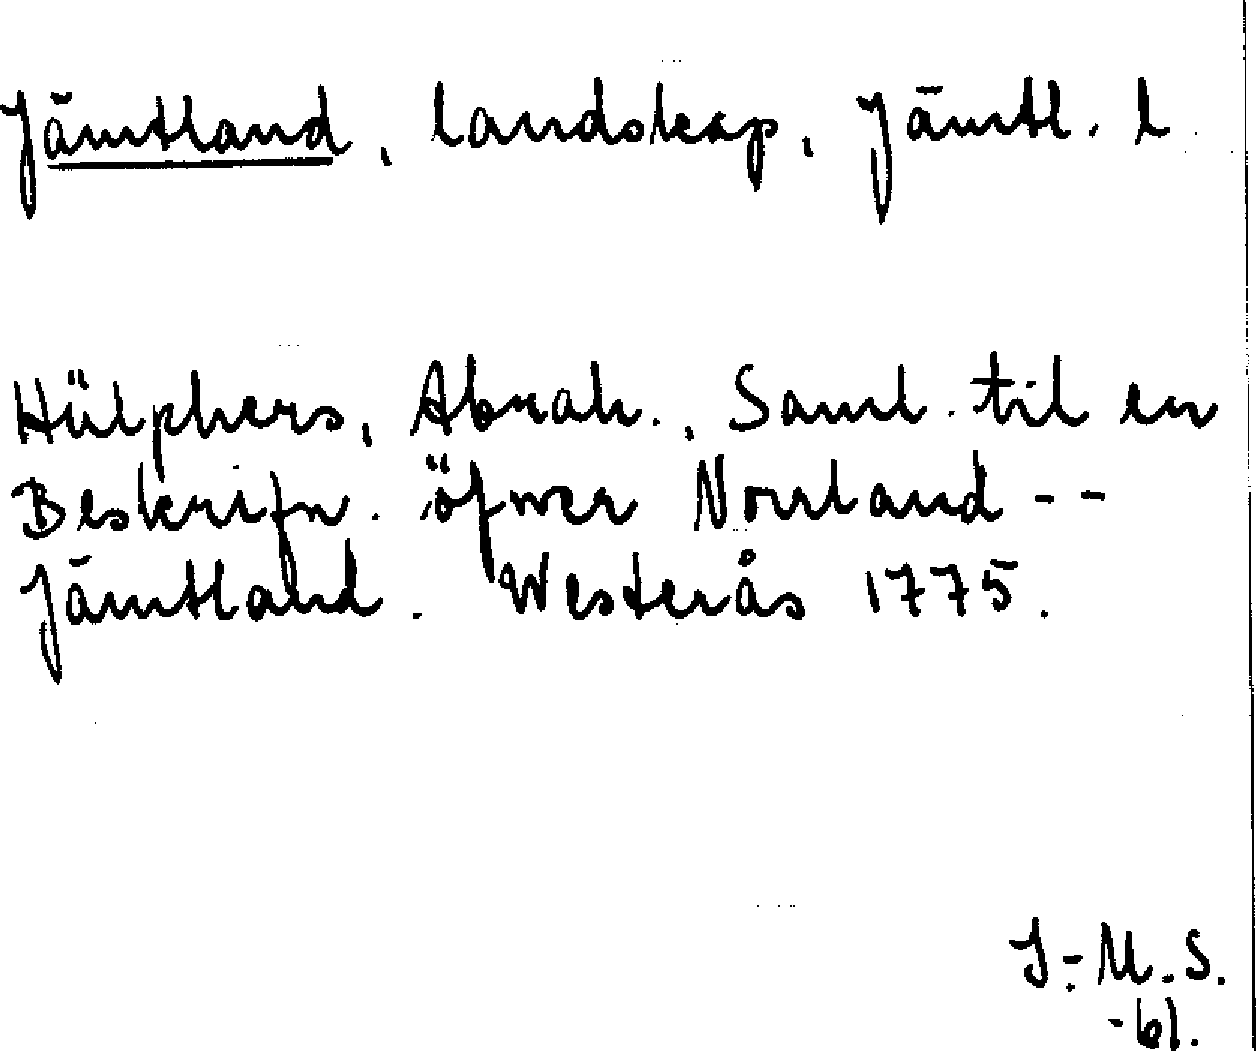 Jämtland, landskap, Jämtl. l
Hülphers, Abrah., Saml. til en
Beskrifn. öfwer Norrland --
Jämtland. Westerås 1775.
I.-M. S.
-61.